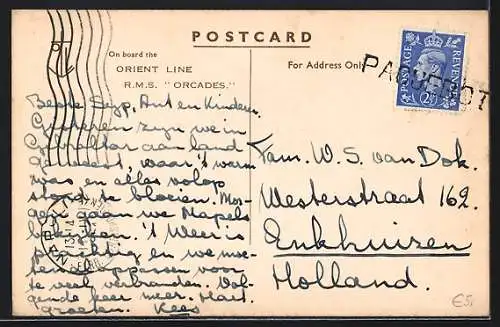 POSTCARD
On board the
ORIENT LINE
R.M.S. "ORCADES."
For Address Only
PAQUEBOT
POSTAGE REVENUE
2½D
Beste Siyp, Ant en Kinderen.
Gisteren zijn we in
Gibraltar aan land
geweest, waar 't warm
was en alles volop
stond te bloeien. Mor-
gen gaan we Napels
bekijken. 't Weer is
prachtig en we moe-
ten oppassen voor
te veel verbranden. Vol-
gende keer meer. Hart.
groeten. Kees
Fam. W. S. van Dok.
Westerstraat 162.
Enkhuizen
Holland.
€5,